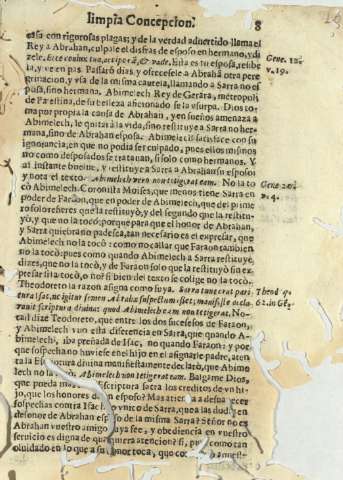 limpia Concepcion. 8
casa con rigorosas plagas; y de la verdad advertido llama el
Rey a Abrahan, culpale el disfras de esposo en hermano, y di
zele. Ecce coniux tua, accipe eã, & vade. Esta es tu esposa, recibe
la, y ve en paz. Passarõ dias, y ofrecesele a Abrahã otra pere
grinacion, y vsa de la misma cautela, llamando a Sarra no es
posa, sino hermana. Abimelech Rey de Gerara, metropoli
de Palestina, de su belleza aficionado se la vsurpa. Dios to
ma por propia la causa de Abrahan, y en sueños amenaza a
Abimelech, le quitarà la vida, sino restituye a Sarra no her
mana, sino de Abrahan esposa. Abimelech satisface con su
ignorancia, en que no podia ser culpado, pues ellos mismos
no como desposados se tratauan, si solo como hermanos. Y
al instante buelue, y restituye a Sarra a Abrahan su esposo
y nota el texto. Abimelech vero non tetigerat eam. No la to
cò Abimelech. Coronista Moises, que menos tiene Sarra en
poder de Faraon, que en poder de Abimelech, que del prime
ro solo refieres que la restituyò, y del segundo que la restitu-
yò, y que no la tocò; porque para que el honor de Abrahan,
y Sarra quiebra no padesca, tan necesario es el expresar, que
Abimelech no la tocò: como no callar que Faraon tambien
no la tocò; pues como quando Abimelech a Sarra restituye,
dizes, que no la tocò, y de Faraon solo que la restituyò sin ex
presar si la tocò, o no? si bien del texto se colige no la tocò.
Theodoreto la razon asigna como suya. Sarra tunc erat pari
tura Isac, ne igitur semen Abrahæ suspectum esset; manifeste decla
rauit scriptura diuina; quod Abimelech eam non tetigerat. No-
tad! dize Teodoreto, que entre los dos sucesos de Faraon,
y Abimelech huo esta diferencia en Sarra, que quando A-
bimelech, iba preñada de Isac, no quando Faraon: y por
que sospecha no huviese en el hijo en el asignarle padre, aten
ta la Escritura diuina manifiestamente declarò, que Abime
lech no la tocò. Abimelech non tetigerat eam. Balgame Dios,
que pueda
que los honores
sospechas contra Isac hijo vnico de Sarra, que a las dudas en
desonor de Abrahan esposo de la misma Sarra? Señor no es
Abrahan vuestro amigo?
seruicio es digna de que
oluidado en lo que a su honor toca, que
Gene. 12.
v. 19.
Gene. 20.
v. 4.
Theod. q.
62. in Gē.